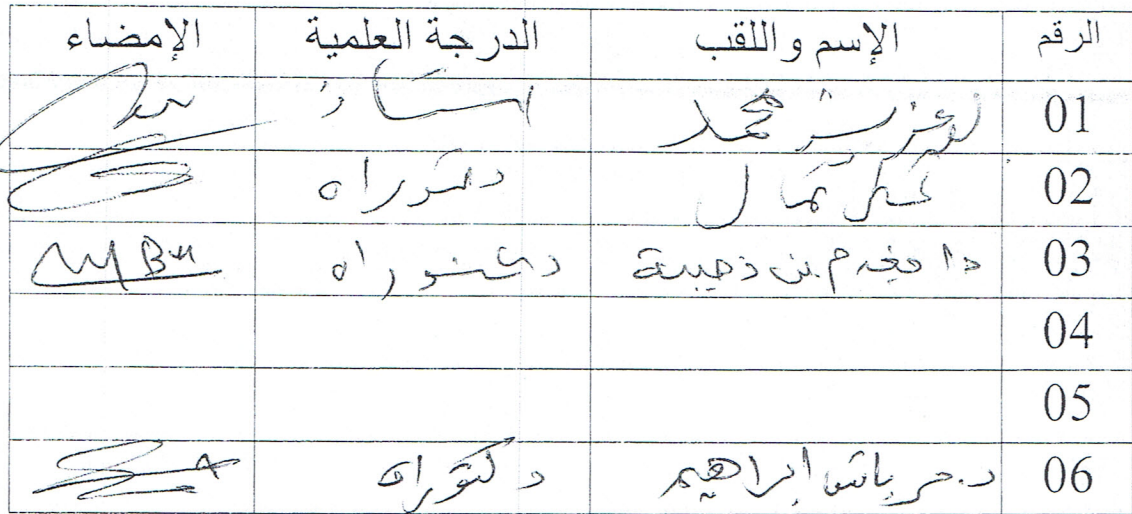 الرقم الإسم واللقب الدرجة العلمية الإمضاء
01 لعزيز محمد استاذ
02 عسكر كمال دكتوراه
03 دكتوراه
04
05
06 د. حرباش إبراهيم دكتوراه